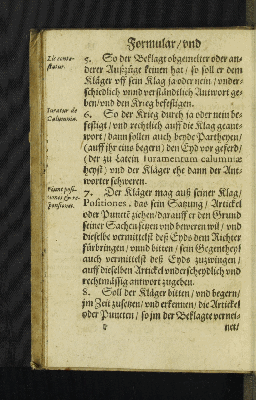 Formular/ vnd
Lis conte-
statur.
5. So der Beklagt obgemelter oder an-
derer Außzüge keinen hat/ so soll er dem
Kläger vff sein Klag ja oder nein/ vnder-
schiedlich vnnd verständlich Antwort ge-
ben/ vnd den Krieg befestigen.
Iuratur de
Calumnia.
6. So der Krieg durch ja oder nein be-
festigt/ vnd rechtlich auff die Klag geant-
wort/ dann sollen auch beyde Partheyen/
(auff ihr eins begern) den Eyd vor geferd/
(der zu Latein Iuramentum calumniæ
heyst) vnd der Kläger ehe dann der Ant-
worter schweren.
Fiunt posi-
tiones & re-
sponsiones.
7. Der Kläger mag auß seiner Klag/
Positiones, das sein Satzung/ Artickel
oder Puncte ziehen/ darauff er den Grund
seiner Sachen setzen vnd beweren wil/ vnd
dieselbe vermittelst deß Eyds dem Richter
fürbringen/ vnnd bitten/ sein Gegentheyl
auch vermittelst deß Eyds zuzwingen/
auff dieselben Artickel vnderscheydlich vnd
rechtmässig antwort zugeben.
8. Soll der Kläger bitten/ vnd begern/
jm Zeit zusetzen/ vnd erkennen/ die Artickel
oder Puncten/ so jm der Beklagte vernei-
net/